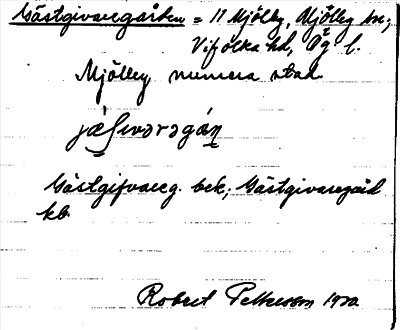 Gästgivaregården = 11 Mjölby, Mjölby sn;
Vifolka hd, Ög l.
Mjölby, numera stad.
Gästgifvareg. bek; Gästgivaregård
kb
Robert Pettersson 1920